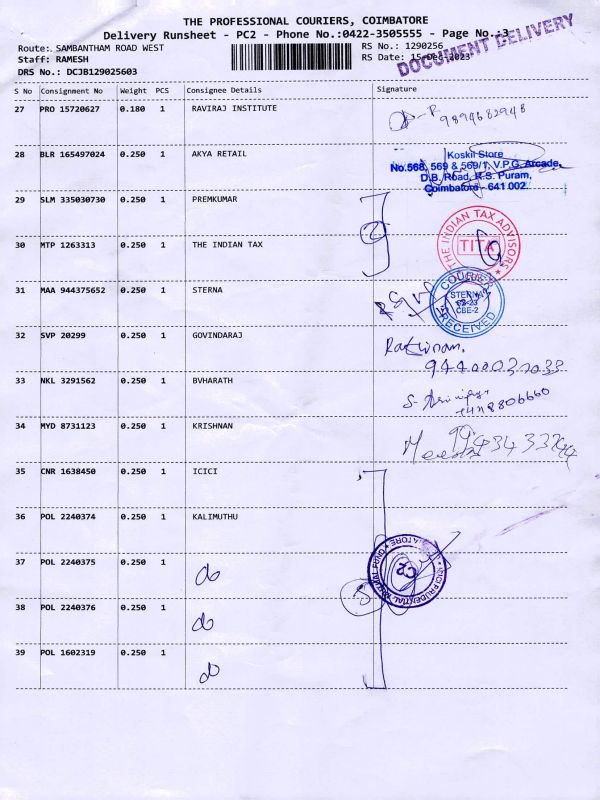 THE PROFESSIONAL COURIERS, COIMBATORE
Delivery Runsheet - PC2 - Phone No.:0422-3505555 - Page No.:3
Route:. SAMBANTHAM ROAD WEST
RS No.: 1290256
Staff: RAMESH
RS Date: 15-Dec-2023
DRS No.: DCJB129025603
DOCUMENT DELIVERY
S No Consignment No Weight PCS Consignee Details Signature
27 PRO 15720627 0.180 1 RAVIRAJ INSTITUTE
28 BLR 165497024 0.250 1 AKYA RETAIL
Koskii Store
No.568, 569 & 569/1, V.P.G. Arcade,
D.B. Road, R.S. Puram,
Coimbatore - 641 002.
29 SLM 335030730 0.250 1 PREMKUMAR
30 MTP 1263313 0.250 1 THE INDIAN TAX
THE INDIAN TAX ADVISORS
TITA
31 MAA 944375652 0.250 1 STERNA
COURIER
STERNA
CBE-2
RECEIVED
32 SVP 20299 0.250 1 GOVINDARAJ
33 NKL 3291562 0.250 1 BVHARATH
34 MYD 8731123 0.250 1 KRISHNAN
35 CNR 1638450 0.250 1 ICICI
36 POL 2240374 0.250 1 KALIMUTHU
37 POL 2240375 0.250 1 do
38 POL 2240376 0.250 1 do
39 POL 1602319 0.250 1 do